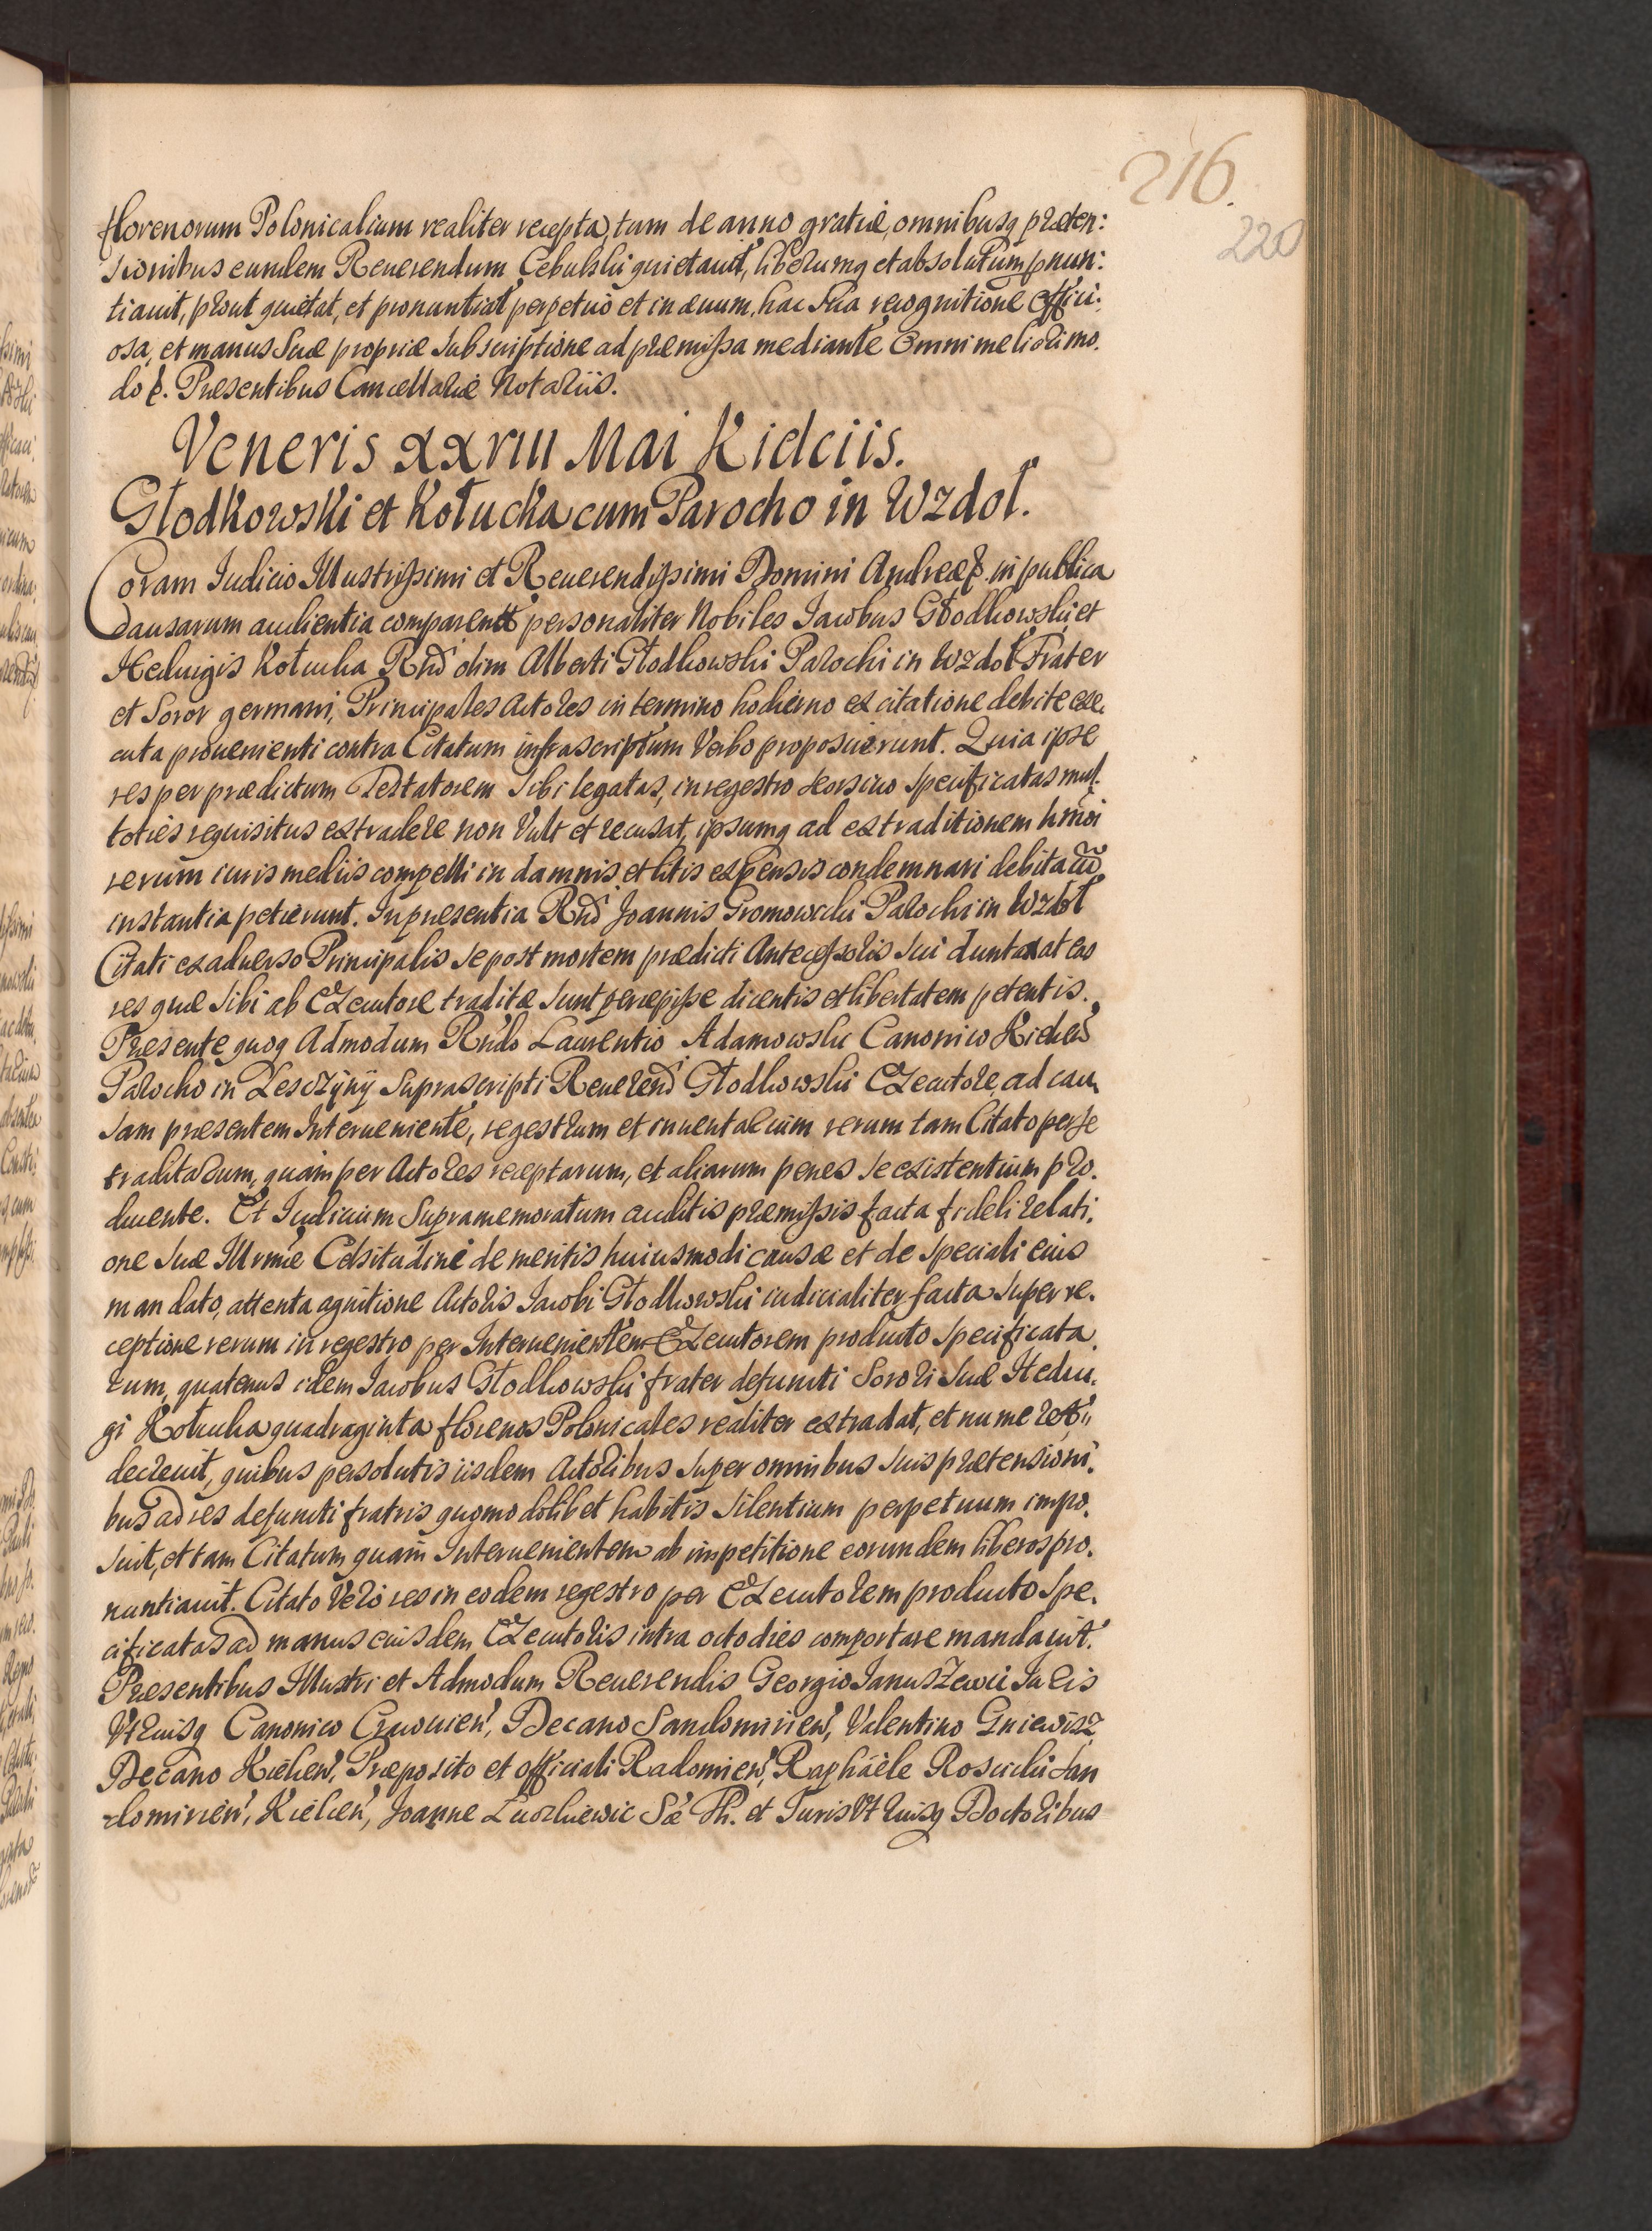 216.
220
florenorum Polonicalium realiter recepta, tum de anno gratiæ, omnibusq præten:
sionibus eundem Reuerendum Cebulski quietauit, liberumq et absolutum pnun:
tiauit, prout quietat, et pronuntiat perpetuo et in æuum, hac sua recognitione offici:
osa, et manus suæ propriæ subscriptione ad præmissa mediante Omni meliori mo.
do &. Præsentibus Cancellariæ Notariis.
Veneris xxviii Mai Kielciis.
Głodkowski et Kołucka cum Parocho in Wzdoł.
Coram Iudicio Illustrissimi et Reuerendissimi Domini Andreæ &. in publica
Causarum audientia comparentes personaliter Nobiles Iacobus Głodkowski et
Heduigis Kołucka Rnd olim Alberti Głodkowski Parochi in Wzdoł Frater
et Soror germani, Principales Actores in termino hodierno ex citatione debite exe.
cuta prouenienti contra Citatum infrascriptum Verbo proposuerunt. Quia ipse
res per prædictum Testatorem sibi legatas, in regestro seorsiuo specificatas mul.
toties requisitus extradere non Vult et recusat, ipsumq ad extraditionem hmoi
rerum iuris mediis compelli in damnis et litis expensis condemnari debita cu
instantia petierunt. In præsentia Rnd Joannis Gromowicki Parochi in Wzdoł
Citati ex aduerso Principalis se post mortem prædicti Antecessoris sui duntaxat eas
res quæ sibi ab Executore traditæ sunt percepisse dicentis et libertatem petentis.
Præsente quoq Admodum Rndo Laurentio Adamowski Canonico Kielcen
Parocho in Lesczÿnÿ suprascripti Reuerend Głodkowski Executore, ad cau
sam præsentem Interueniente, regestrum et inuentarium rerum tam Citato per se
traditarum, quam per Actores receptarum, et aliarum penes se existentium pro.
ducente. Et Iudicium Supramemoratum auditis præmissis facta fideli relati.
one suæ Illrmæ Celsitudini de meritis huiusmodi causæ et de speciali eius
mandato, attenta agnitione Actoris Iacobi Głodkowski iudicialiter facta super re.
ceptione rerum in regestro per Interuenientem Executorem producto specificata.
rum, quatenus idem Iacobus Głodkowski frater defuncti Sorori suæ Hedui.
gi Kołucka quadraginta florenos Polonicales realiter extradat, et numeret,
decreuit, quibus persolutis iisdem Actoribus super omnibus suis prætensioni.
bus ad res defuncti fratris quomodolibet habitis silentium perpetuum impo.
suit, et tam Citatum quam Interuenientem ab impetitione eorundem liberos pro.
nuntiauit. Citato Vero res in eodem regestro per Executorem producto spe.
cificatas ad manus eiusdem Executoris intra octo dies comportare mandauit.
Præsentibus Illustri et Admodum Reuerendis Georgio Ianuszewic Iuris
Vtriusq Canonico Cracouien, Decano Sandomirien, Valentino Gniewisz
Decano Kielcen, Præposito et officiali Radomien, Raphaele Roscicki San
domirien, Kielcen, Joanne Luorkiewic Sæ Th. et Iuris Vtriusq Doctoribus